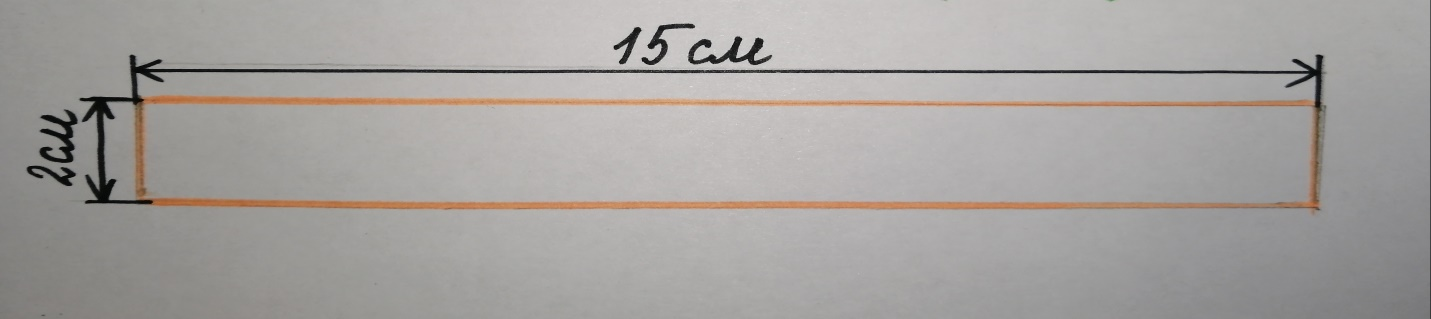 15 см
2см